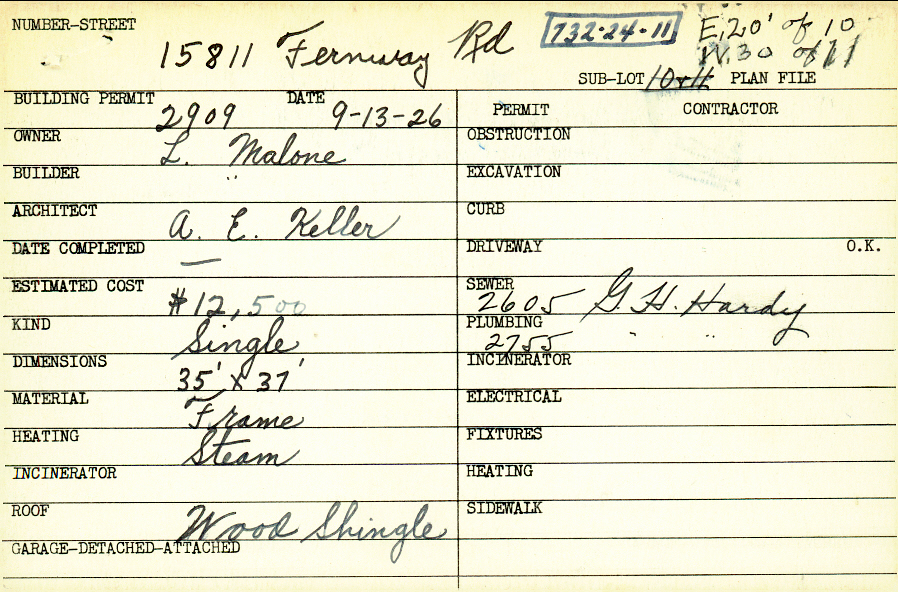 NUMBER-STREET 15811 Fernway Rd 732-24-11 E.20' of 10
W.30 of 11
SUB-LOT 10+11 PLAN FILE
BUILDING PERMIT 2909 DATE 9-13-26
OWNER L. Malone
BUILDER "
ARCHITECT A. E. Keller
DATE COMPLETED —
ESTIMATED COST $12,500
KIND Single
DIMENSIONS 35' x 37'
MATERIAL Frame
HEATING Steam
INCINERATOR
ROOF Wood Shingle
GARAGE-DETACHED-ATTACHED
PERMIT CONTRACTOR
OBSTRUCTION
EXCAVATION
CURB
DRIVEWAY O.K.
SEWER 2605 G. H. Hardy
PLUMBING 2755 " "
INCINERATOR
ELECTRICAL
FIXTURES
HEATING
SIDEWALK